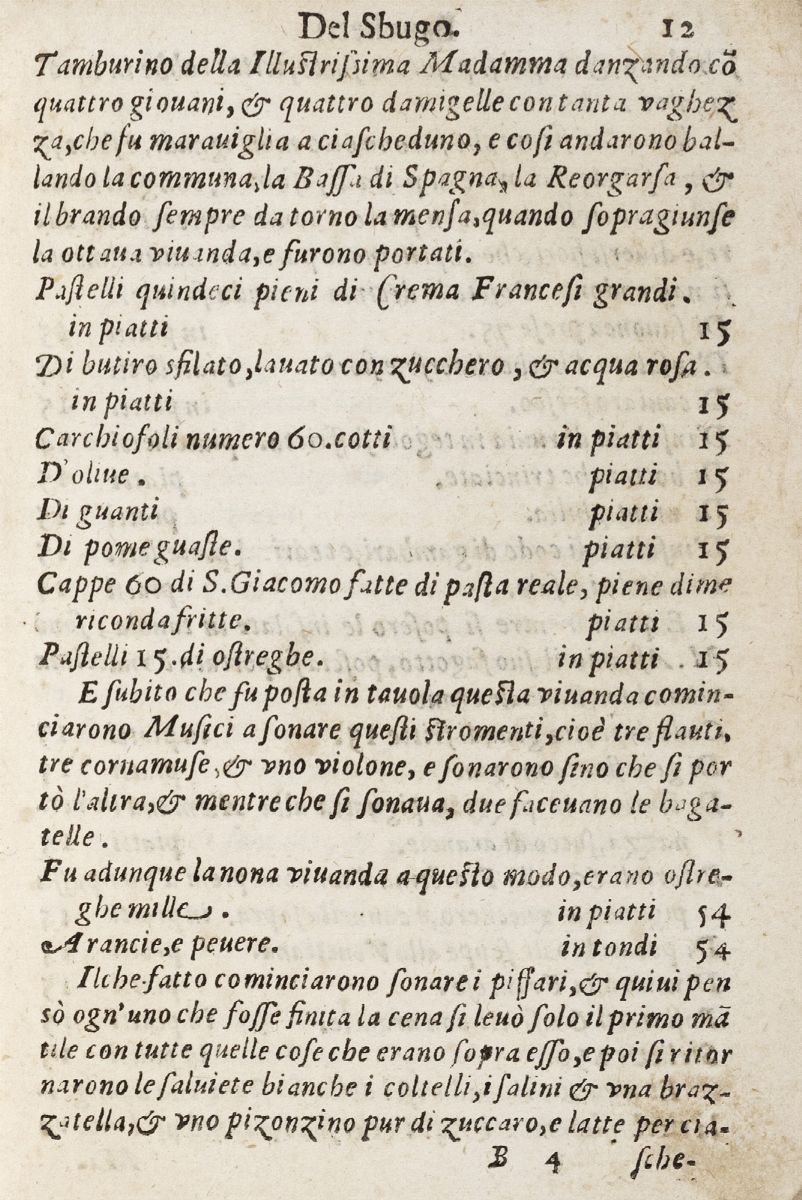 Del Sbugo. 12
Tamburino della Illustriſsima Madamma danzando cõ
quattro giouani, & quattro damigelle con tanta vaghez
za, che fu marauiglia a ciaſcheduno, e coſi andarono bal-
lando la communa, la Baſſa di Spagna, la Reorgarſa, &
il brando ſempre da torno la menſa, quando ſopragiunſe
la ottaua viuanda, e furono portati.
Paſtelli quindeci pieni di Crema Franceſi grandi.
in piatti 15
Di butiro sfilato, lauato con zucchero, & acqua roſa.
in piatti 15
Carchiofoli numero 60. cotti in piatti 15
D'oliue. piatti 15
Di guanti piatti 15
Di pome guaſte. piatti 15
Cappe 60 di S. Giacomo fatte di paſta reale, piene di me
riconda fritte. piatti 15
Paſtelli 15. di oſtreghe. in piatti 15
E ſubito che fu poſta in tauola queſta viuanda comin-
ciarono Muſici a ſonare queſti ſtromenti, cioè tre flauti,
tre cornamuſe, & vno violone, e ſonarono ſino che ſi por
tò l'altra, & mentre che ſi ſonaua, due faceuano le baga-
telle.
Fu adunque la nona viuanda a queſto modo, erano oſtre-
ghe mille. in piatti 54
Arancie, e peuere. in tondi 54
Il che fatto cominciarono ſonare i piffari, & quiui pen
sò ogn'uno che foſſe finita la cena ſi leuò ſolo il primo mã
tile con tutte quelle coſe che erano ſopra eſſo, e poi ſi ritor
narono le ſaluiete bianche i coltelli, i ſalini & vna braz-
zatella, & vno pizonzino pur di zuccaro, e latte per cia-
B 4 ſche-